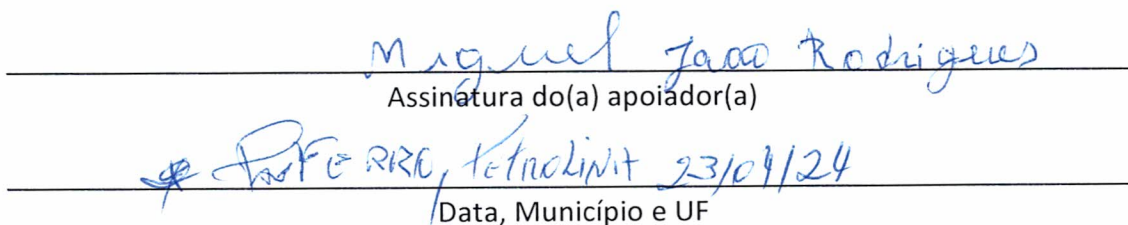 Miguel João Rodrigues
Assinatura do(a) apoiador(a)
PETROLINA 23/04/24
Data, Município e UF